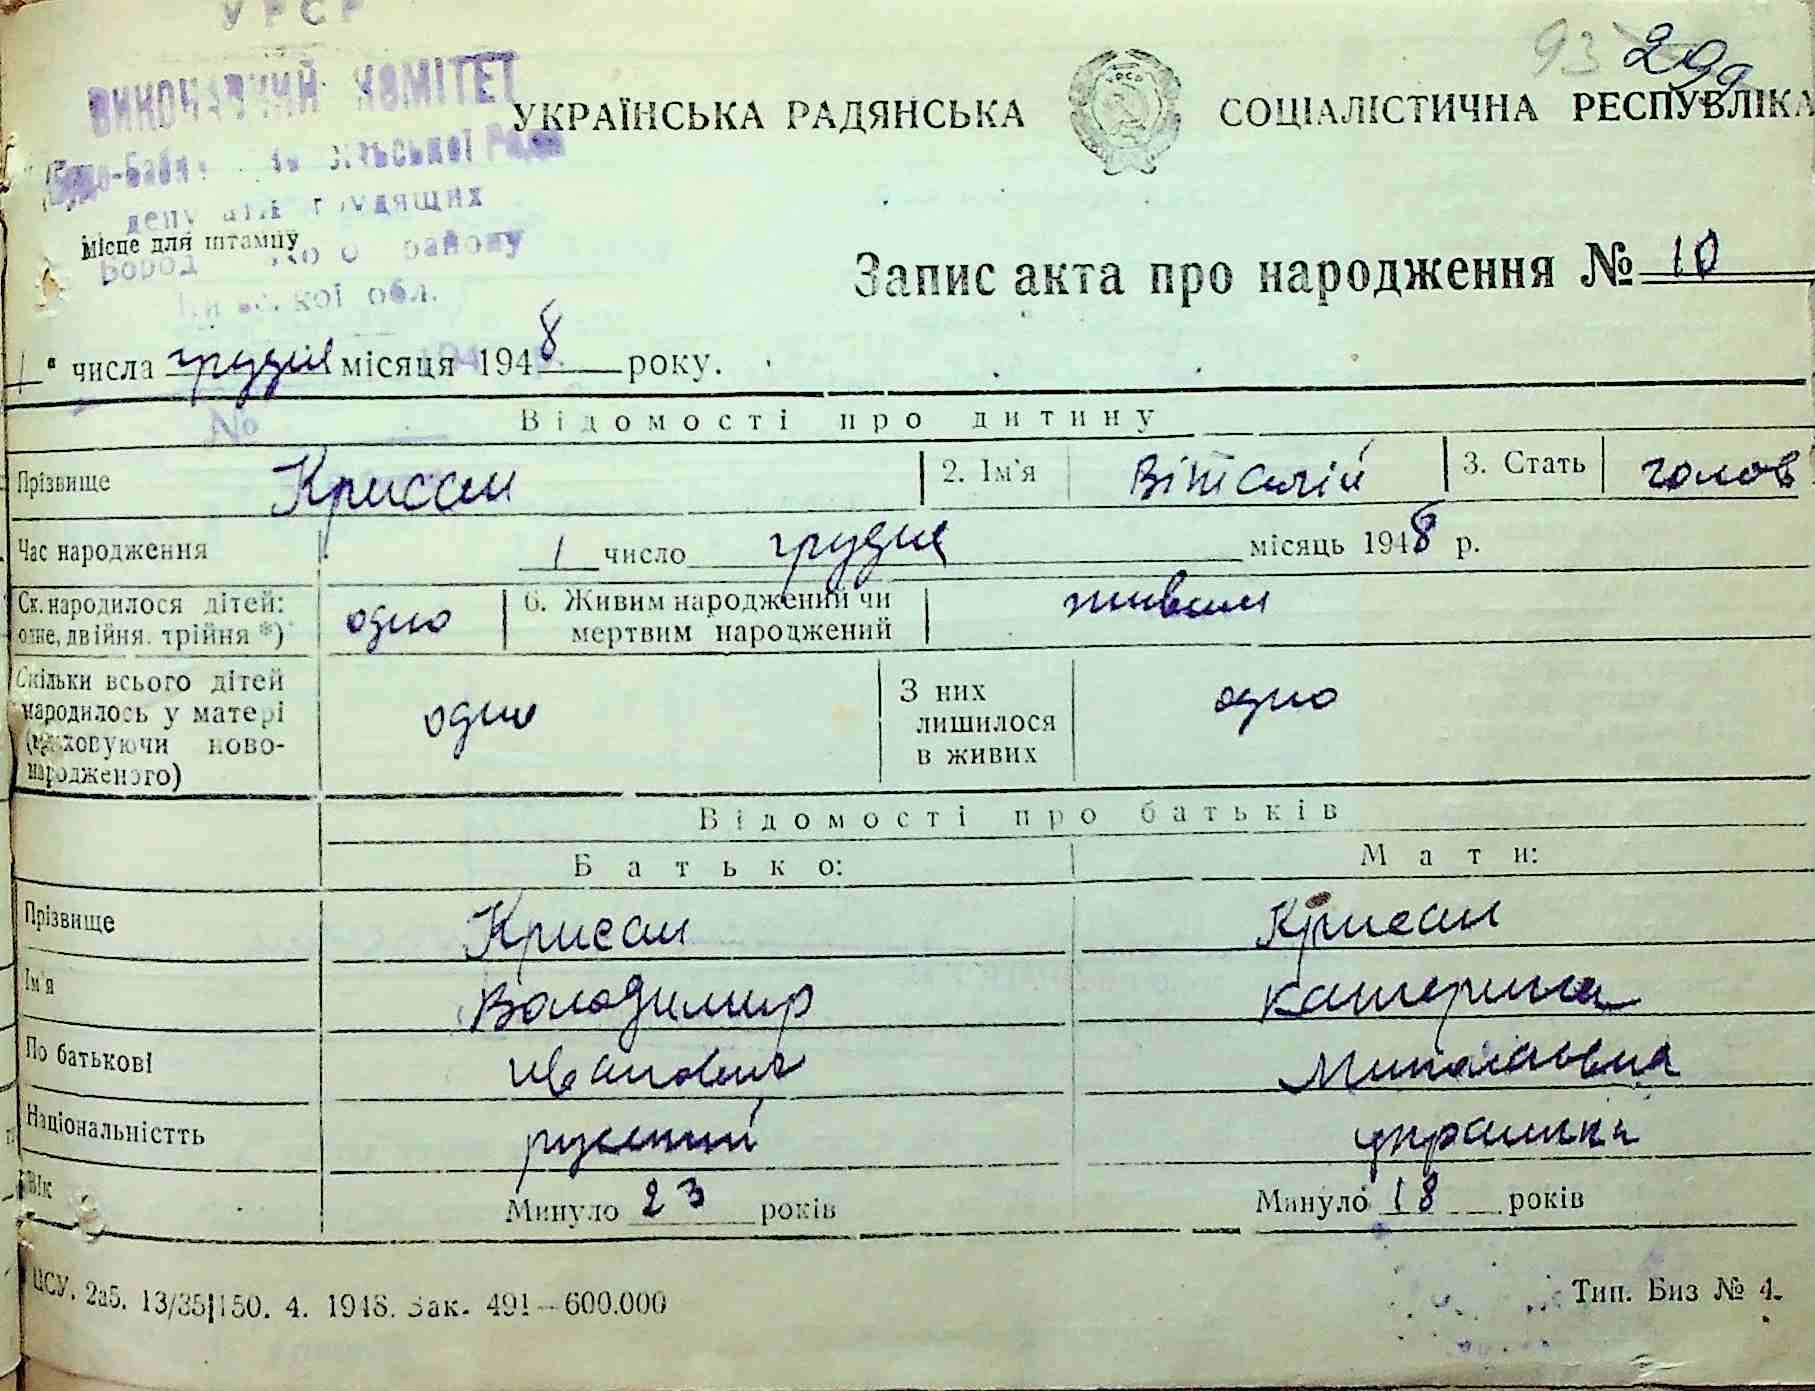 УРСР
93 299
ВИКОНАВЧИЙ КОМІТЕТ
УКРАЇНСЬКА РАДЯНСЬКА СОЦІАЛІСТИЧНА РЕСПУБЛІКА
сільської Ради
депутатів трудящих
Місце для штампу
району
обл.
Запис акта про народження № 10
1 " числа грудня місяця 1948 року.
№
Відомості про дитину
Прізвище Крисан 2. Ім'я Віталій 3. Стать голов
Час народження 1 число грудня місяць 1948 р.
Ск. народилося дітей: одне, двійня. трійня *) одно 6. Живим народжений чи мертвим народжений живим
Скільки всього дітей народилось у матері (враховуючи ново- народженого) одно З них лишилося в живих одно
Відомості про батьків
Батько: Мати:
Прізвище Крисан Крисан
Ім'я Володимир Катерина
По батькові Иванович Миколаївна
Національністть руський українка
Вік Минуло 23 років Минуло 18 років
ЦСУ. 2аб. 13/35|150. 4. 1948. Зак. 491—600.000 Тип. Биз № 4.